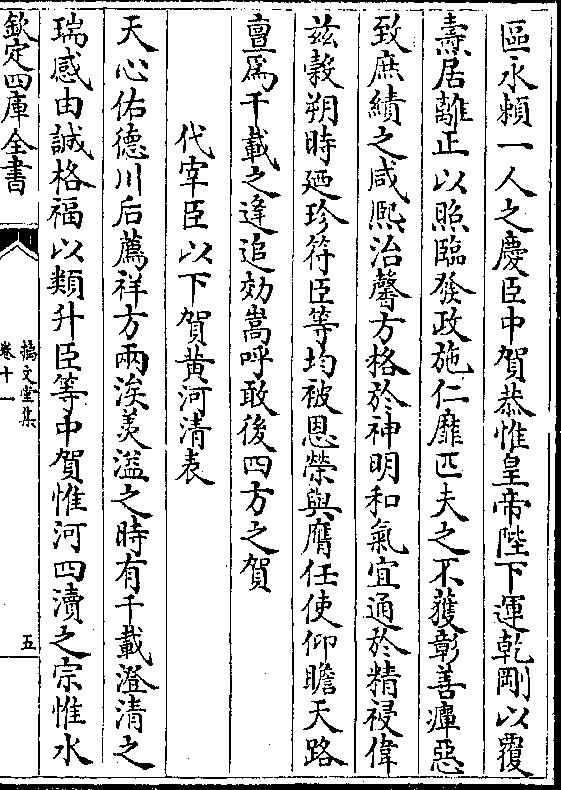 區永頼一人之慶臣中賀恭惟皇帝陛下運乾剛以覆
燾居離正以照臨發政施仁靡匹夫之不獲彰善癉惡
致庶績之咸熙治馨方格於神明和氣宜通於精祲偉
兹穀朔時廼珍符臣等均被恩榮與膺任使仰瞻天路
亶爲千載之逢追効嵩呼敢後四方之賀
代宰臣以下賀黄河清表
天心佑德川后薦祥方兩涘羙溢之時有千載澄清之
瑞感由誠格福以類升臣等中賀惟河四瀆之宗惟水
欽定四庫全書
摛文堂集
卷十一
五